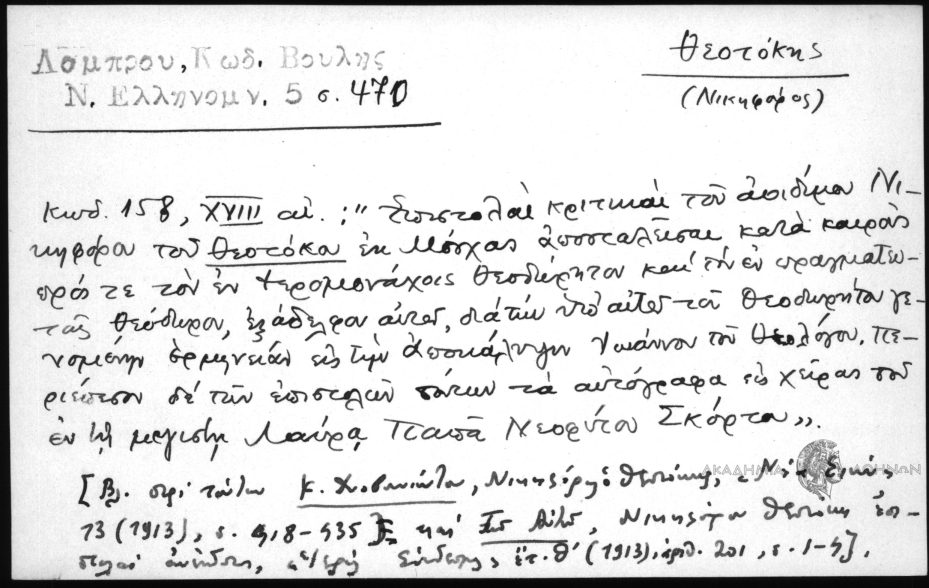 Λάμπρου, Κωδ. Βουλης
Ν. Ελληνομν. 5 σ. 470
Θεοτόκης
(Νικηφόρος)
Κωδ. 158, XVIII αἰ. : "Ἐπιστολαὶ κριτικαὶ τοῦ ἀοιδίμου Νι-
κηφόρου τοῦ Θεοτόκου ἐκ Μόσχας ἀποσταλεῖσαι κατὰ καιροὺς
πρός τε τὸν ἐν ἱερομονάχοις Θεοδώρητον καὶ τὸν ἐν πραγματευ-
ταῖς Θεόδωρον, ἐξάδελφον αὐτοῦ, διὰ τὴν ὑπ' αὐτοῦ τοῦ Θεοδωρήτου γε-
νομένην ἑρμηνείαν εἰς τὴν Ἀποκάλυψιν Ἰωάννου τοῦ Θεολόγου. Πε-
ριέπεσον δὲ τῶν ἐπιστολῶν τούτων τὰ αὐτόγραφα εἰς χεῖρας τοῦ
ἐν τῇ μεγίστῃ Λαύρᾳ Παπᾶ Νεοφύτου Σκόρτου".
[Βλ. περὶ τούτων Κ. Νικηφόρος Θεοτόκης, Νέα Σιὼν
13 (1913), σ. 418-435] καὶ Τοῦ Αὐτοῦ, Νικηφόρου Θεοτόκη ἐπι-
στολαὶ ἀνέκδοτοι, ἔτ. Θ' (1913), ἀριθ. 201, σ. 1-4].
ΑΚΑΔΗΜΙΑ ΑΘΗΝΩΝ